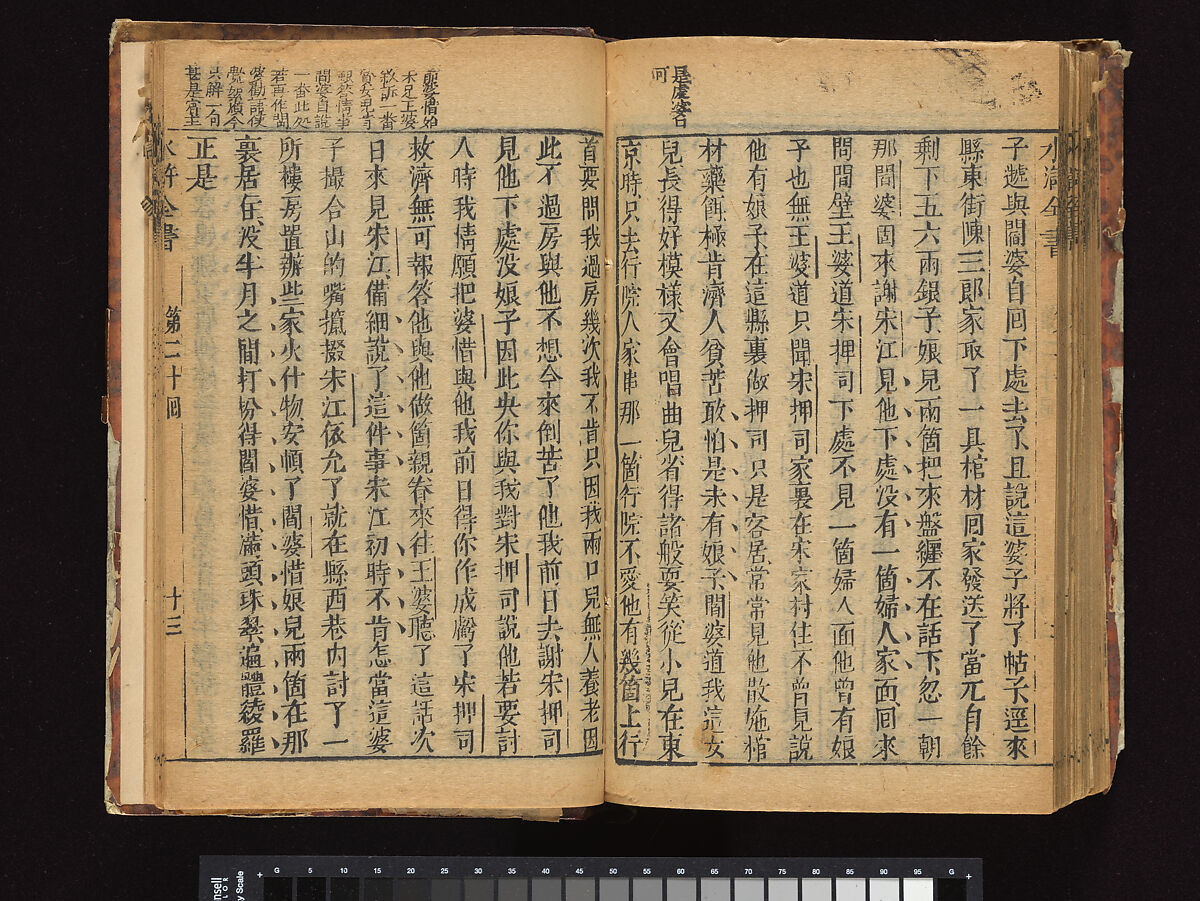 是虔婆口
可
子遞與閻婆自回下處去了且說這婆子將了帖子逕來
縣東街陳三郎家取了一具棺材回家發送了當兀自餘
剩下五六兩銀子娘兒兩箇把來盤纏不在話下忽一朝
那閻婆因來謝宋江見他下處没有一箇婦人家面回來
問間壁王婆道宋押司下處不見一箇婦人面他曾有娘
子也無王婆道只聞宋押司家裏在宋家村住不曾見說
他有娘子在這縣裏做押司只是客居常常見他散施棺
材藥餌極肯濟人貧苦敢怕是未有娘子閻婆道我這女
兒長得好模樣又會唱曲兒省得諸般耍笑從小兒在東
京時只去行院人家串那一箇行院不愛他有幾箇上行
首要問我過房幾次我不肯只因我兩口兒無人養老因
此不過房與他不想今來倒苦了他我前日去謝宋押司
見他下處没娘子因此央你與我對宋押司說他若要討
人時我情願把婆惜與他我前日得你作成虧了宋押司
救濟無可報答他與他做箇親眷來往王婆聽了這話次
日來見宋江備細說了這件事宋江初時不肯怎當這婆
子撮合山的嘴攛掇宋江依允了就在縣西巷内討了一
所樓房置辦些家火什物安頓了閻婆惜娘兒兩箇在那
裏居住没半月之間打扮得閻婆惜滿頭珠翠遍體綾羅
正是
水滸全書 第二十回 十三
水滸全書